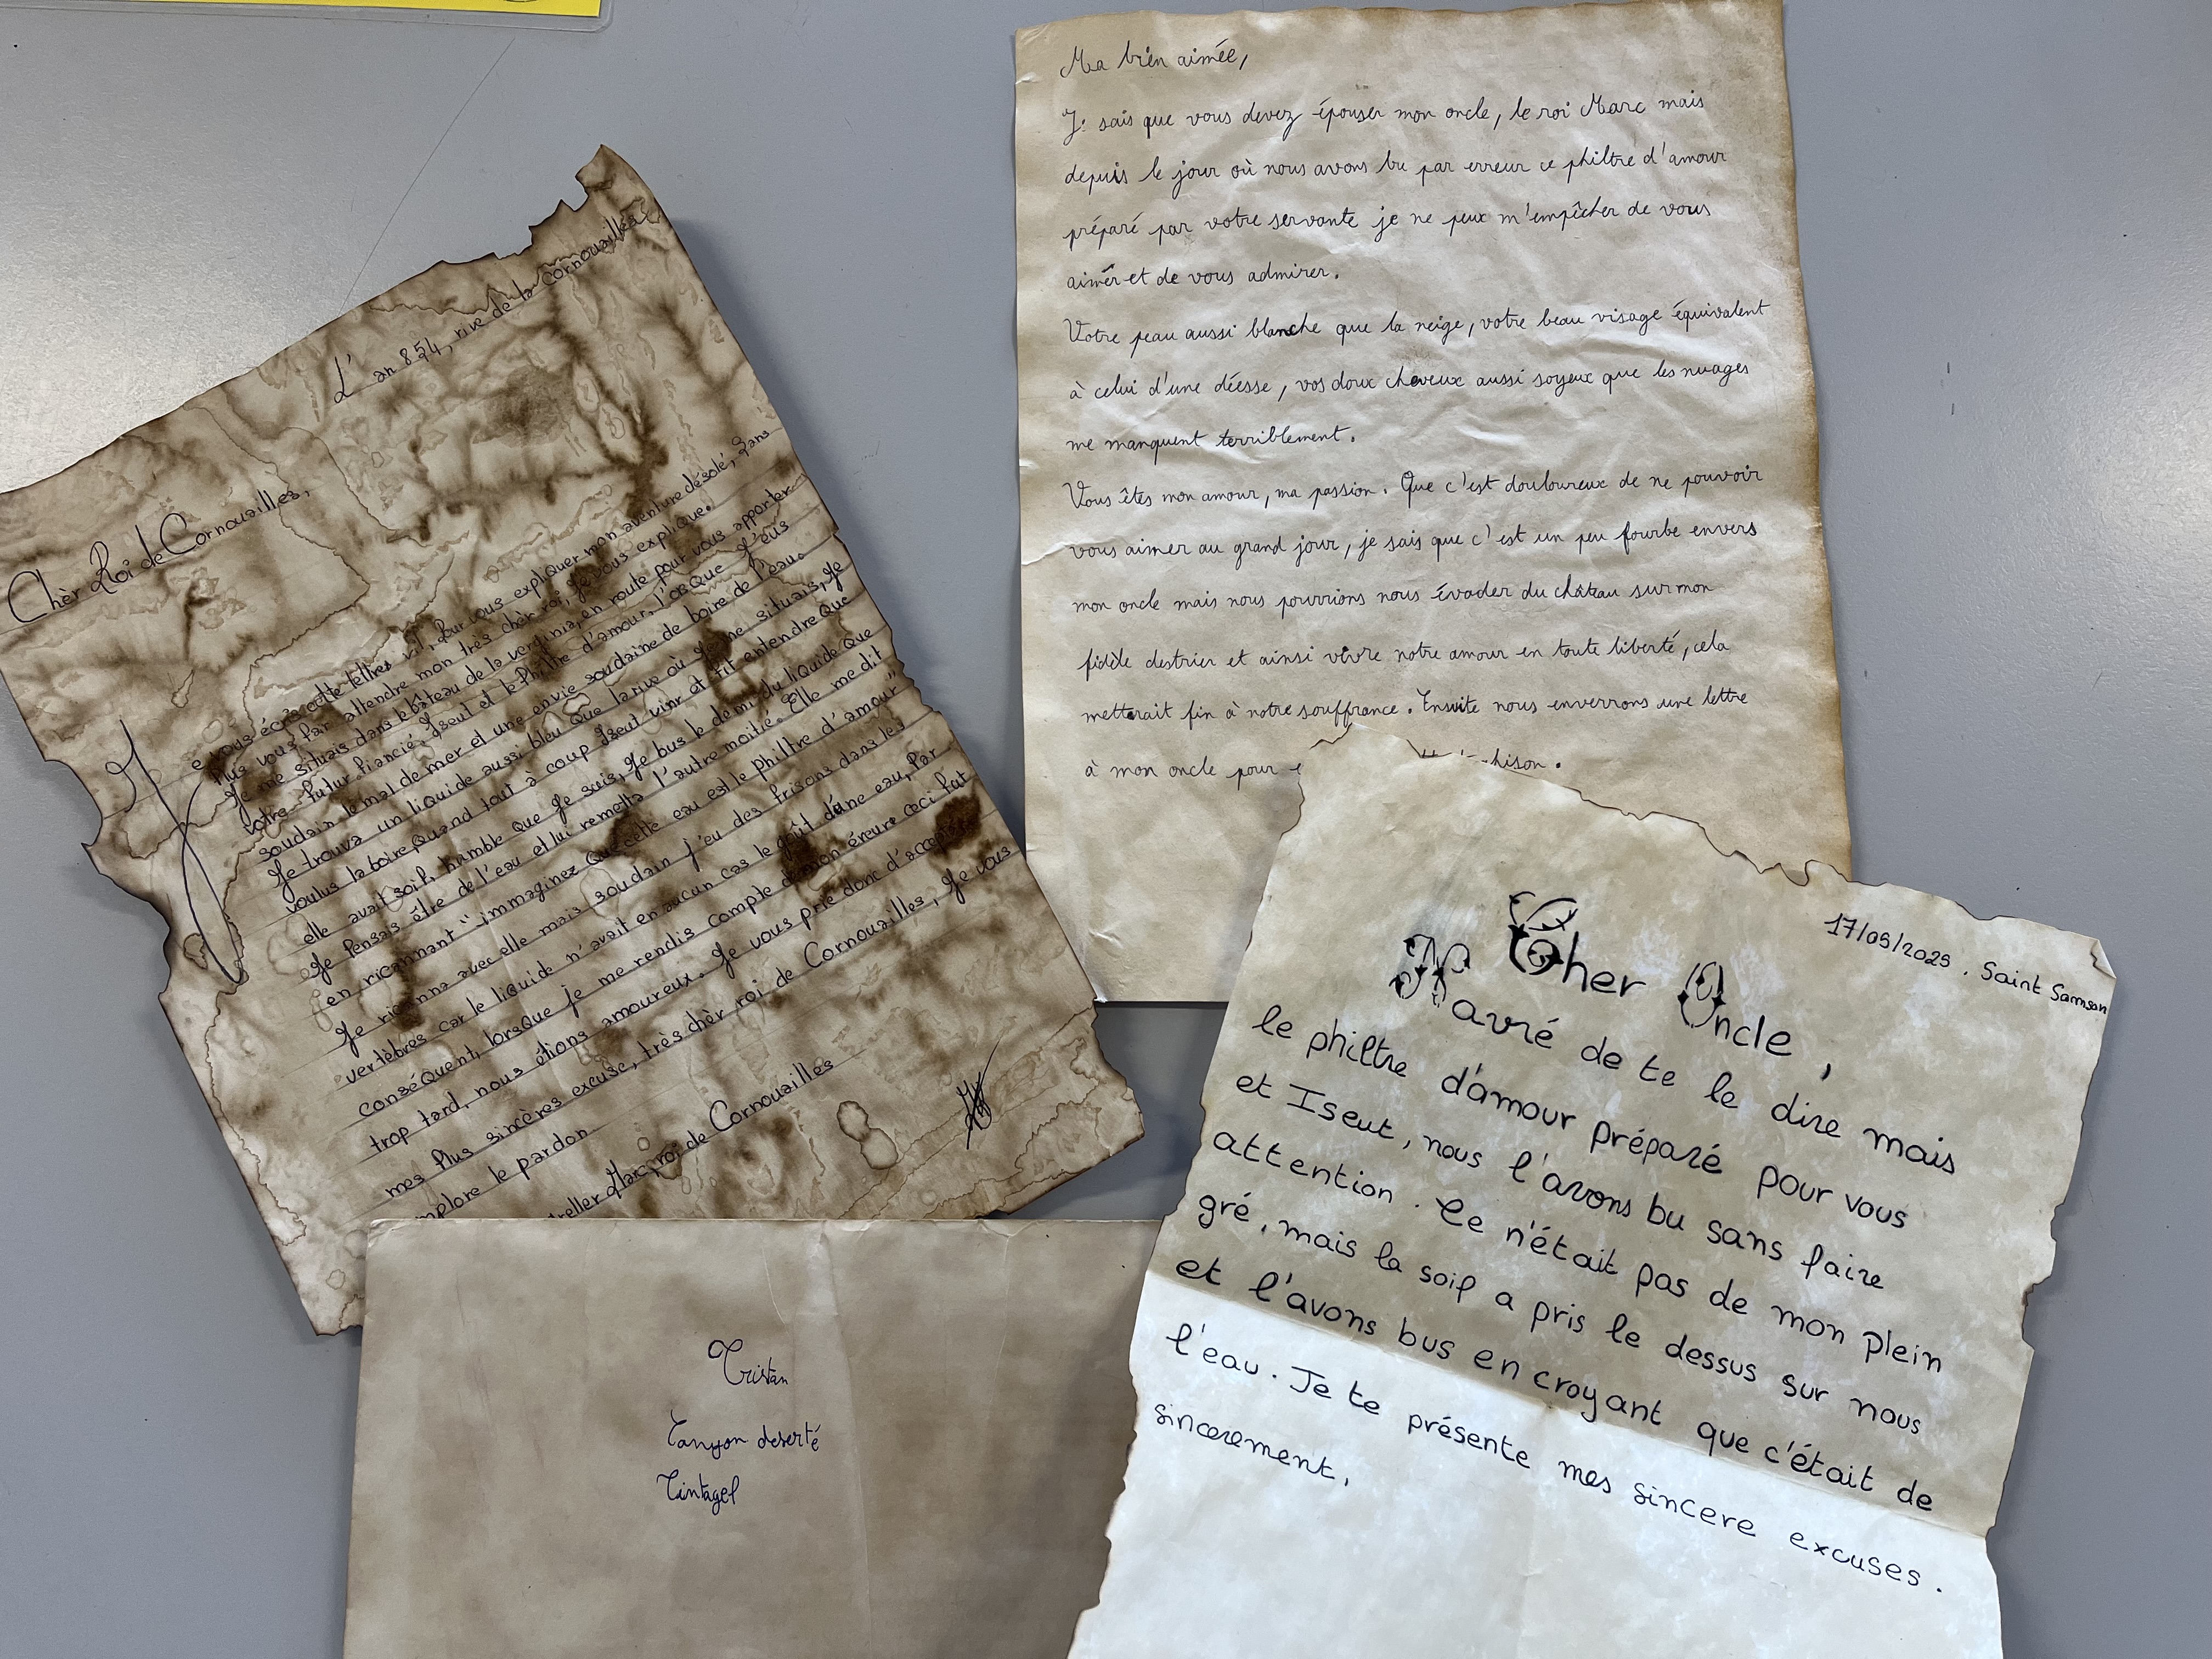 L'an 854, rive de la Cornouailles
Chèr Roi de Cornouailles,
Je vous écris cette lettres pour vous expliquer mon aventure désolé, sans
plus vous far attendre mon très chèr roi, je vous explique.
Je me situais dans le bâteau de la verginia, en route pour vous apporter
votre futur fiancié, Iseut et le Philtre d'amour, l'orsque j'eus
soudain le mal de mer et une envie soudaine de boire de l'eau.
Je trouva un liquide aussi bleu que la rive où je me situais, je
voulus la boire, quand tout à coup Iseut vinr et fit entendre que
elle avait soif, humble que je suis, je bus le demi du liquide que
je pensais être de l'eau et lui remetta l'autre moitié. Elle me dit
en ricannant "immaginez que cette eau est le philtre d'amour"
Je ricanna avec elle mais soudain j'eu des frisons dans les
vertèbres car le liquide n'avait en aucun cas le goût d'une eau, par
conséquent, lorsque je me rendis compte de mon éreure ceci fut
trop tard, nous étions amoureux. Je vous prie donc d'accepter
mes plus sincères excuse, très chèr roi de Cornouailles, je vous
implore le pardon
Marc, roi de Cornouailles
Ma bien aimée,
Je sais que vous devez épouser mon oncle, le roi Marc mais
depuis le jour où nous avons bu par erreur ce philtre d'amour
préparé par votre servante je ne peux m'empêcher de vous
aimer et de vous admirer.
Votre peau aussi blanche que la neige, votre beau visage équivalent
à celui d'une déesse, vos doux cheveux aussi soyeux que les nuages
me manquent terriblement.
Vous êtes mon amour, ma passion. Que c'est douloureux de ne pouvoir
vous aimer au grand jour, je sais que c'est un peu fourbe envers
mon oncle mais nous pourrions nous évader du château sur mon
fidèle destrier et ainsi vivre notre amour en toute liberté, cela
metterait fin à notre souffrance. Ensuite nous enverrons une lettre
à mon oncle pour
17/09/2025. Saint Samson
Cher Oncle,
Navré de te le dire mais
le philtre d'amour préparé pour vous
et Iseut, nous l'avons bu sans faire
attention. Ce n'était pas de mon plein
gré, mais la soif a pris le dessus sur nous
et l'avons bus en croyant que c'était de
l'eau. Je te présente mes sincere excuses.
sincerement,
Tristan
Canyon deserté
Tintagel